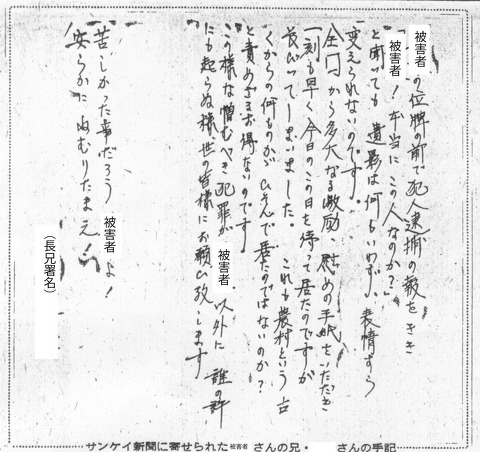 被害者の位牌の前で犯人逮捕の報をきき
「被害者！本当にこの人なのか？」
と聞いても遺影は何もいわずい表情すら
変えられないのです。
全国から多大なる激励、慰めの手紙をいただき
一刻も早く今日のこの日を待って居たのですが
長びいてしまいました。これも農村という古
くからの何ものかがひそんで居たのではないのか？
と責めざるお得ないのです
この様な憎むべき犯罪が被害者以外に誰の許
にも起らぬ様、世の皆様にお願ひ致します
苦しかった事だろう被害者よ！
安らかにねむりたまえ！
（長兄署名）
サンケイ新聞に寄せられた被害者さんの兄・さんの手記